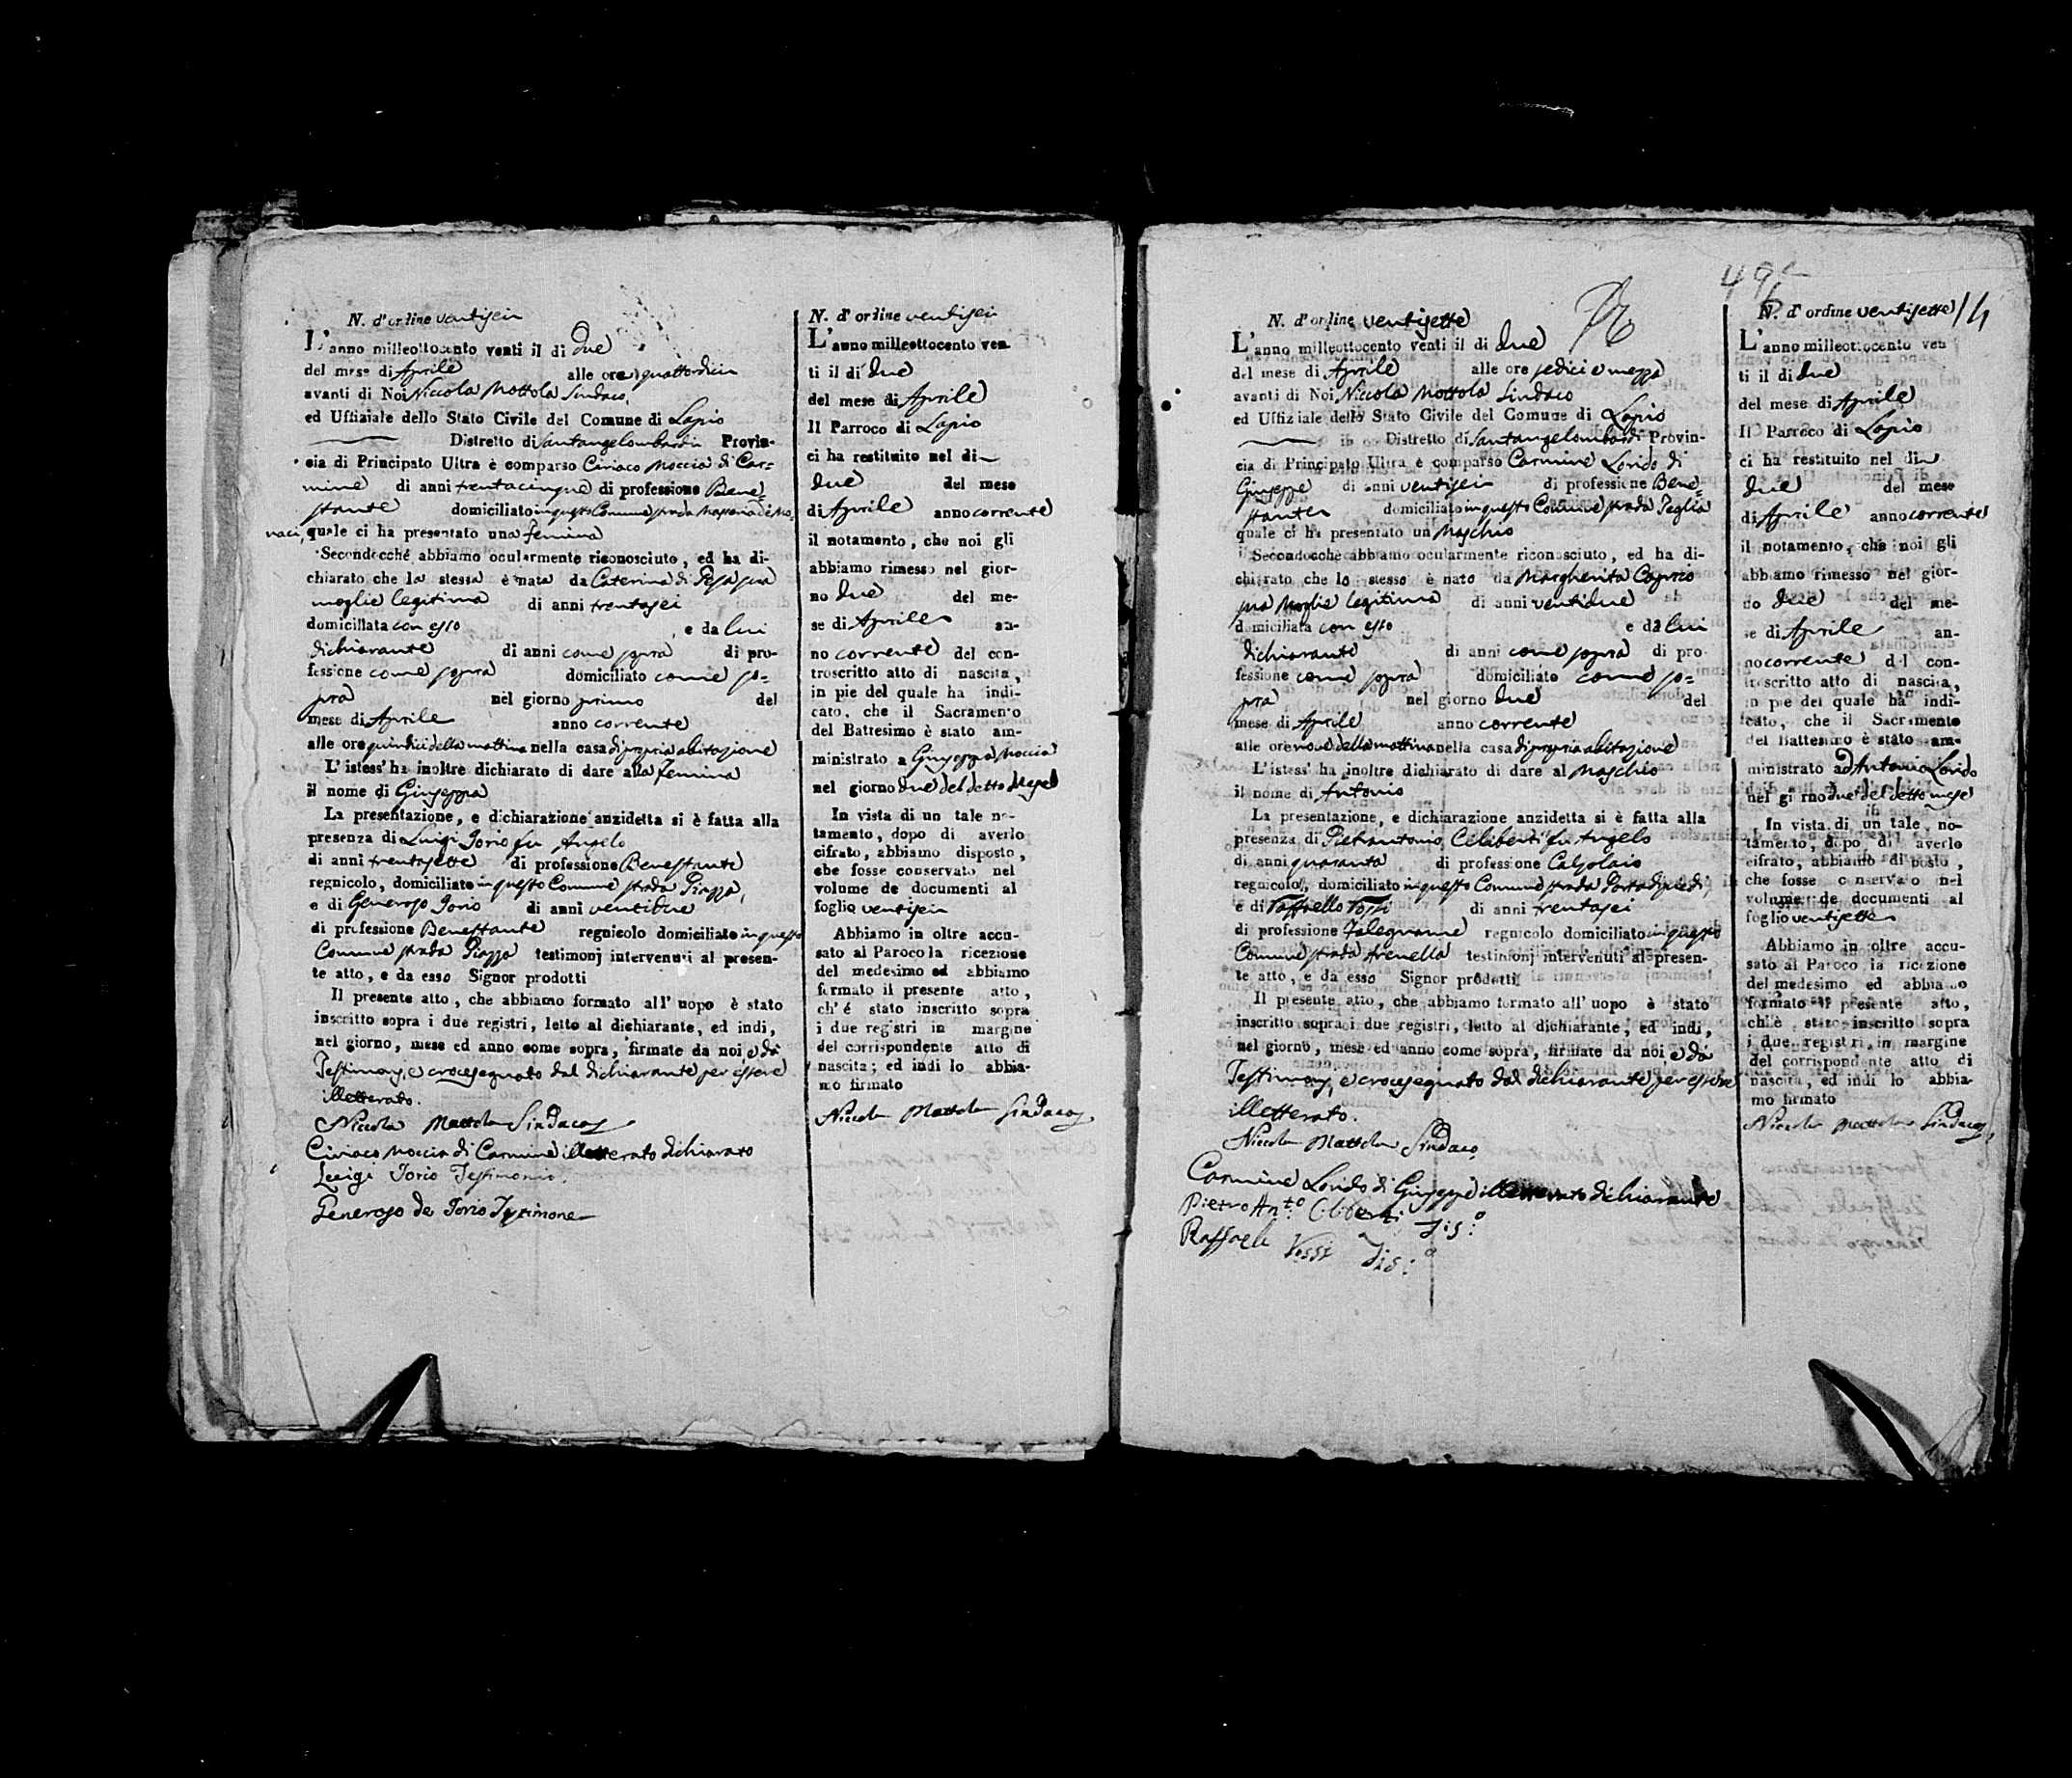 N. d'ordine ventisein
L'anno milleottocento venti il di due
del mese di Aprile alle ore quattordicin
avanti di Noi Niccola Mottola Sindaco
ed Uffiziale dello Stato Civile del Comune di Lapio
Distretto di Santangelombardi Provin-
cia di Principato Ultra è comparso Ciriaco Moccia di Car=
mine di anni trentacinque di professione Bene=
stante domiciliato in questo Comune strada
naci, quale ci ha presentato una Femina
Secondocché abbiamo ocularmente riconosciuto, ed ha di-
chiarato che la stessa è nata da Caterina di sua
moglie legitima di anni trentasei
domiciliata con esso e da lui
dichiarante di anni come sopra di pro-
fessione come sopra domiciliato come so=
pra nel giorno primo del
mese di Aprile anno corrente
alle ore quindici della mattina nella casa di propria abitazione
L'istess' ha inoltre dichiarato di dare alla Femina
il nome di Giuseppa
La presentazione, e dichiarazione anzidetta si è fatta alla
presenza di Luigi Iorio fu Angelo
di anni trentasette di professione Benestante
regnicolo, domiciliato in questo Comune strada Piazza,
e di Generoso Iorio di anni ventidue
di professione Benestante regnicolo domiciliato in questo
Comune strada Piazza testimonj intervenuti al presen-
te atto, e da esso Signor prodotti
Il presente atto, che abbiamo formato all' uopo è stato
inscritto sopra i due registri, letto al dichiarante, ed indi,
nel giorno, mese ed anno come sopra, firmate da noi, e da
Testimonj, e crocesegnato dal dichiarante per essere
illetterato.
Niccola Mottola Sindaco
Ciriaco Moccia di Carmine illetterato dichiarato
Luigi Iorio Testimonio.
Generoso de Iorio Testimone
N. d'ordine ventisein
L'anno milleottocento ven
ti il di due
del mese di Aprile
Il Parroco di Lapio
ci ha restituito nel di
due del mese
di Aprile anno corrente
il notamento, che noi gli
abbiamo rimesso nel gior-
no due del me-
se di Aprile an-
no corrente del con-
troscritto atto di nascita,
in pie del quale ha indi-
cato, che il Sacramento
del Battesimo è stato am-
ministrato a Giuseppa Moccia
nel giorno due del detto Mese
In vista di un tale no-
tamento, dopo di averlo
cifrato, abbiamo disposto,
che fosse conservato nel
volume de documenti al
foglio ventisein
Abbiamo in oltre accu-
sato al Paroco la ricezione
del medesimo ed abbiamo
formato il presente atto,
ch' é stato inscritto sopra
i due registri in margine
del corrispondente atto di
nascita; ed indi lo abbia-
mo firmato
Niccola Mottola Sindaco
N. d'ordine ventisette
L'anno milleottocento venti il di due
del mese di Aprile alle ore sedici e mezza
avanti di Noi Niccola Mottola Sindaco
ed Uffiziale dello Stato Civile del Comune di Lapio
Distretto di Santangelombardi Provin-
cia di Principato Ultra è comparso Carmine Lorido di
Giuseppe di anni ventisein di professione Bene=
stante domiciliato in questo Comune strada Teglia
quale ci ha presentato un Maschio
Secondocché abbiamo ocularmente riconosciuto, ed ha di-
chiarato che lo stesso è nato da Margherita Caprio
sua Moglie legitima di anni ventidue
domiciliata con esso e da lui
dichiarante di anni come sopra di pro
fessione come sopra domiciliato come so=
pra nel giorno due del
mese di Aprile anno corrente
alle ore nove della mattina nella casa di propria abitazione
L'istess' ha inoltre dichiarato di dare al Maschio
il nome di Antonio
La presentazione, e dichiarazione anzidetta si è fatta alla
presenza di Pietrantonio Celiberti fu Angelo
di anni quaranta di professione Calzolaio
regnicolo, domiciliato in questo Comune strada
e di Raffaello Rossi di anni trentasei
di professione Falegname regnicolo domiciliato in questo
Comune strada Arenella testimonj intervenuti al presen-
te atto, e da esso Signor prodotti
Il presente atto, che abbiamo formato all' uopo è stato
inscritto sopra i due registri, letto al dichiarante, ed indi,
nel giorno, mese ed anno come sopra, firmate da noi, e da
Testimonj, e crocesegnato dal dichiarante per essere
illetterato.
Niccola Mottola Sindaco
Carmine Lorido di Giuseppe illetterato dichiarante
Pietro Ant.o Celiberti
Raffaele Rossi
N. d'ordine ventisette 14
L'anno milleottocento ven
ti il di due
del mese di Aprile
Il Parroco di Lapio
ci ha restituito nel di
due del mese
di Aprile anno corrente
il notamento, che noi gli
abbiamo rimesso nel gior-
no due del me-
se di Aprile an-
no corrente del con-
troscritto atto di nascita,
in pie del quale ha indi-
cato, che il Sacramento
del Battesimo è stato am-
ministrato ad Antonio Lorido
nel giorno due del detto mese
In vista di un tale no-
tamento, dopo di averlo
cifrato, abbiamo disposto,
che fosse conservato nel
volume de documenti al
foglio ventisette
Abbiamo in oltre accu-
sato al Paroco la ricezione
del medesimo ed abbiamo
formato il presente atto,
ch'è stato inscritto sopra
i due registri in margine
del corrispondente atto di
nascita, ed indi lo abbia-
mo firmato
Niccola Mottola Sindaco